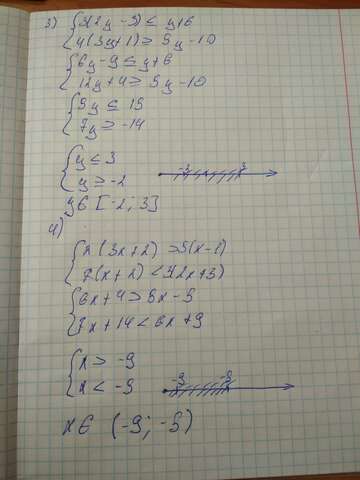 3) { 3(2y - 3) ≤ y+6
{ 4(3y+1) ≥ 5y - 10
{ 6y - 9 ≤ y+6
{ 12y + 4 ≥ 5y - 10
{ 5y ≤ 15
{ 7y ≥ -14
{ y ≤ 3
{ y ≥ -2
-2 3
y ∈ [-2; 3]
4)
{ 2(3x+2) > 5(x-1)
{ 7(x+2) < 3(2x+3)
{ 6x+4 > 5x - 5
{ 7x + 14 < 6x + 9
{ x > -9
{ x < -5
-9 -5
x ∈ (-9; -5)